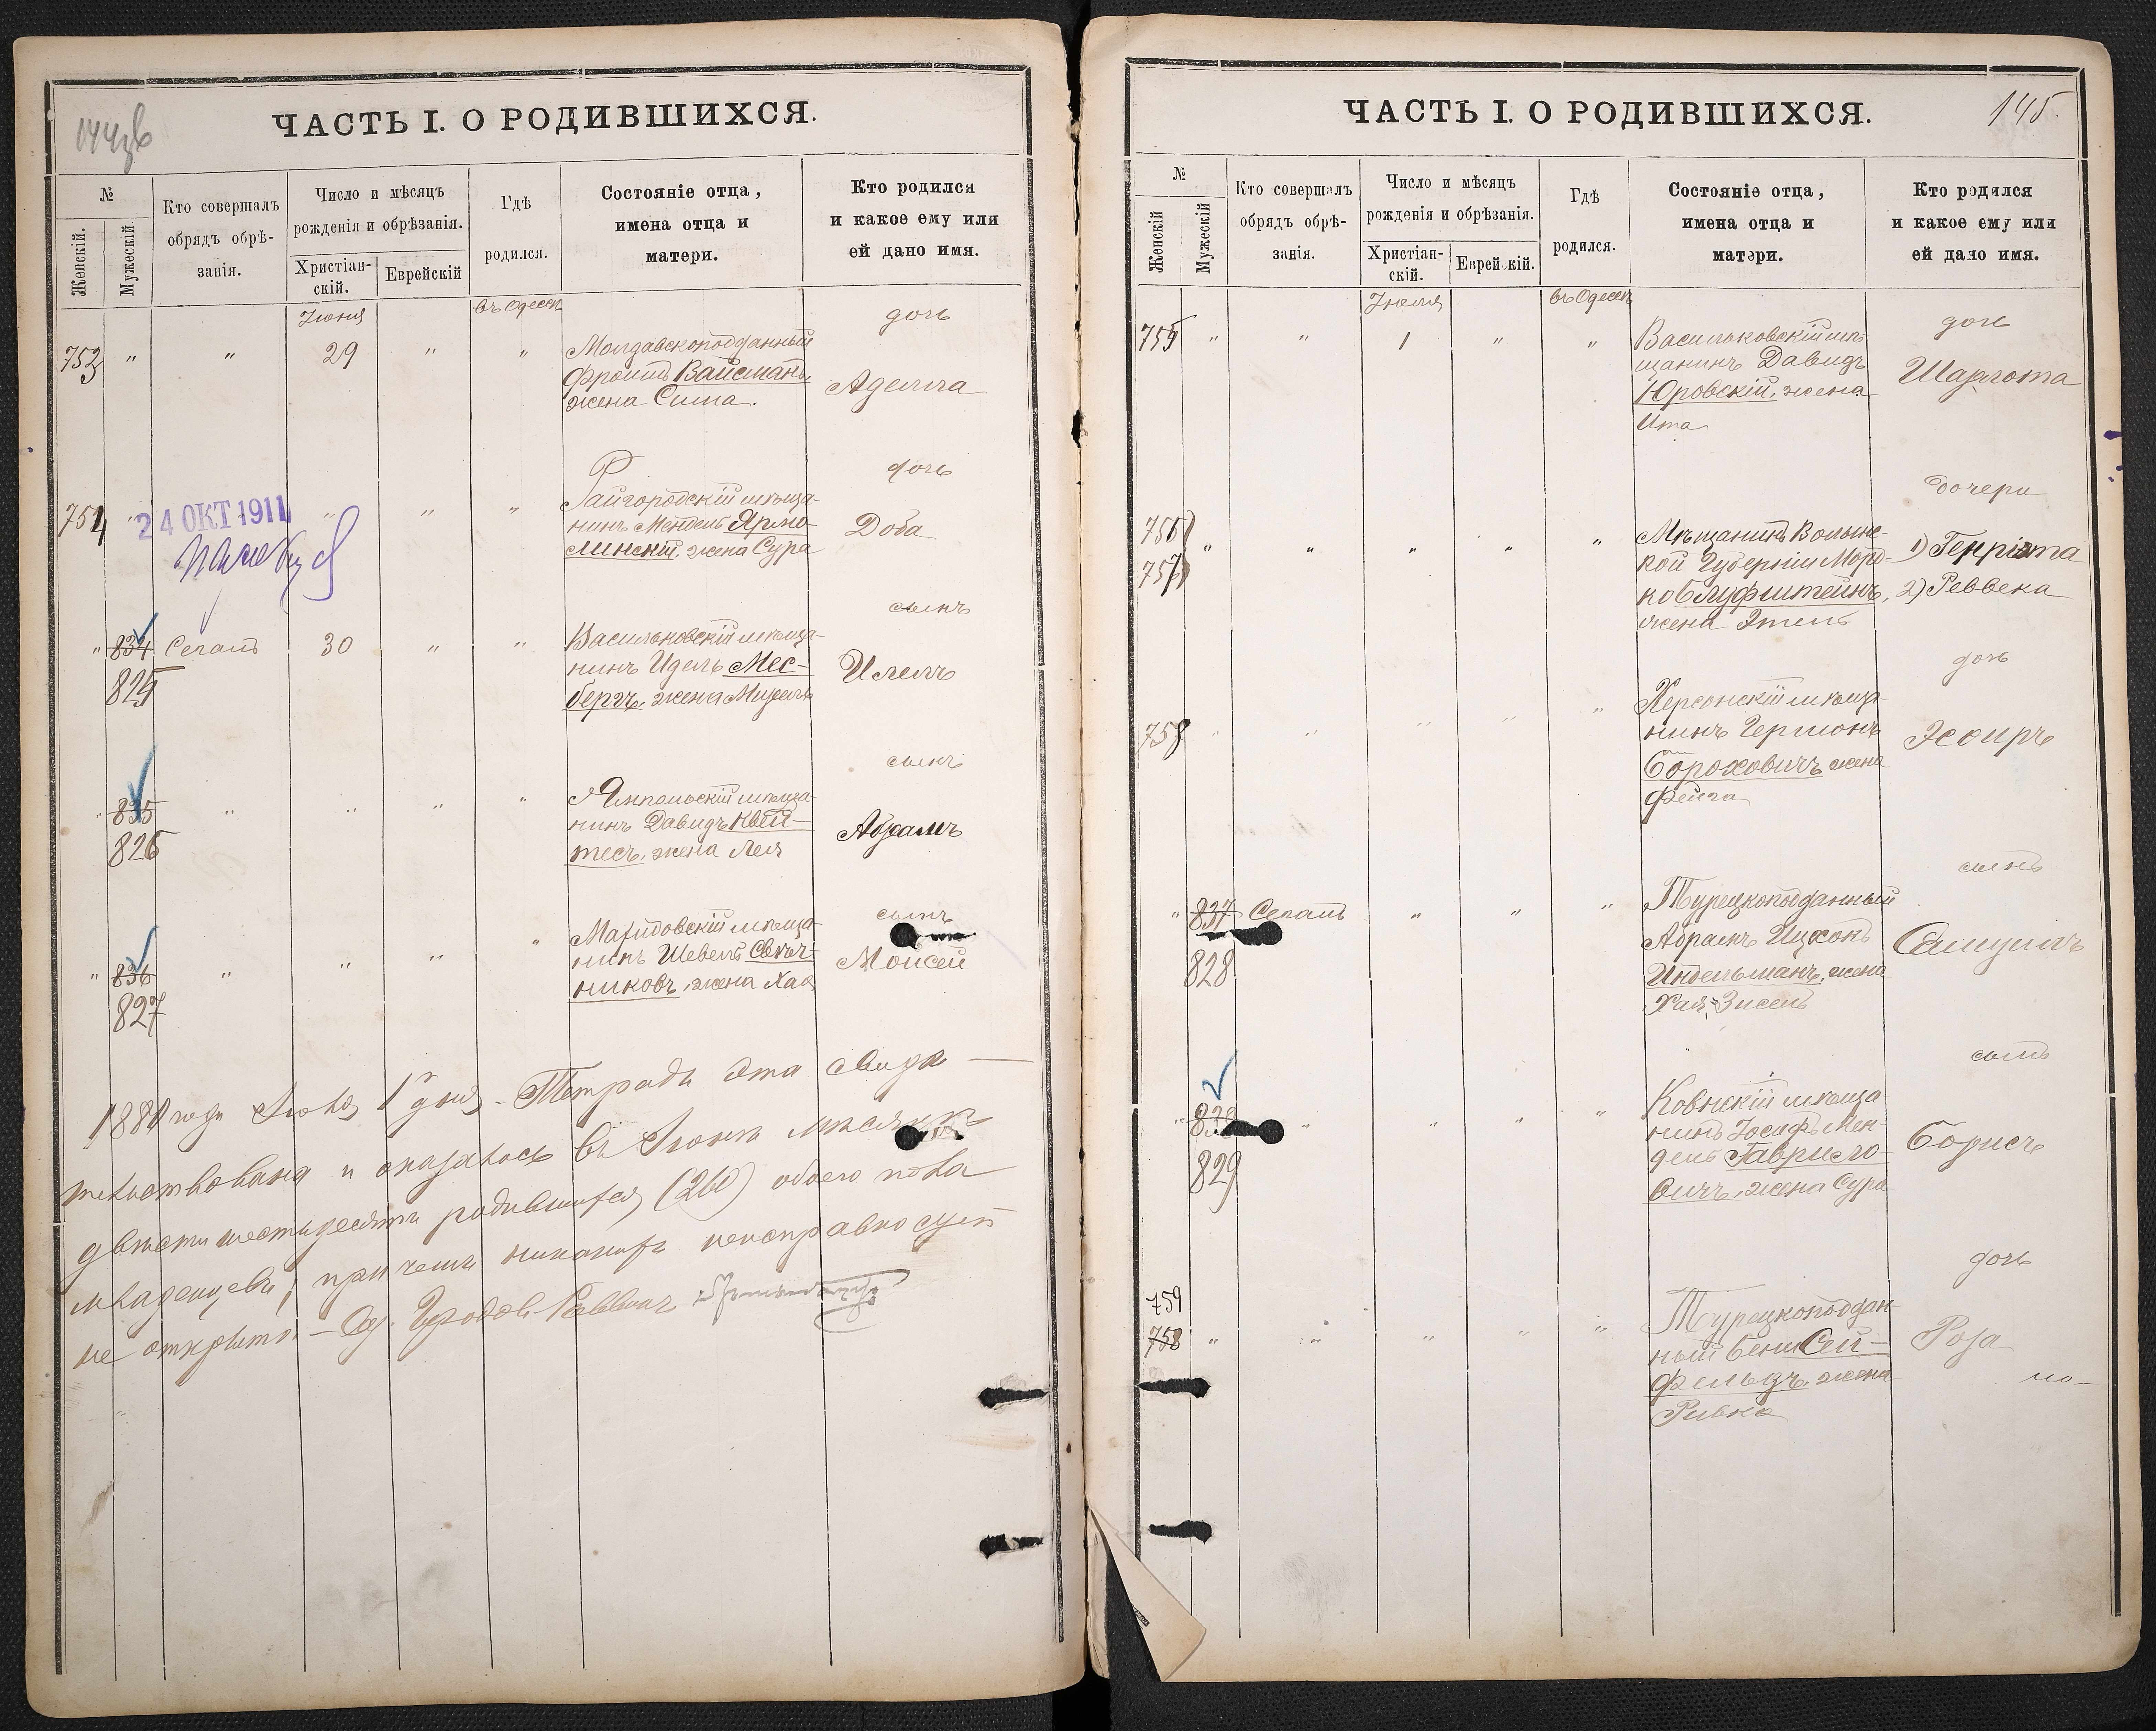 ЧАСТЬ I. О РОДИВШИХСЯ.
№
Женскій.
Мужескій
Кто совершалъ
обрядъ обрѣ-
занія.
Число и мѣсяцъ
рожденія и обрѣзанія.
Христіан-
скій.
Еврейскій
Гдѣ
родился.
Состояніе отца,
имена отца и
матери.
Кто родился
и какое ему или
ей дано имя.
Іюня
въ Одессѣ
дочь
753 " " 29 " "
Молдавскоподданный
Фроимъ Вайсманъ,
жена Сима.
Аделла
дочь
754 " " " "
24 ОКТ 1911
Райгородскій мѣща-
нинъ Мендель Ярмо-
линскій, жена Сура
Доба
сынъ
" 834 Сегалъ 30 " "
825
Васильковскій мѣща-
нинъ Идель Мес-
бергъ, жена
сынъ
" 835 " " " "
826
Ямпольскій мѣща-
нинъ Давидъ Квей-
тесъ, жена Лея
Абрамъ
сынъ
" 836 " " " "
827
мѣща-
нинъ Шевель Свѣч-
никовъ, жена Хая
Моисей
года Іюля 1 дня. Тетрадь эта свидѣ-
тельствована и оказалось въ Іюнѣ мѣсяцѣ
двѣсти шестьдесятъ родившихся (260) обоего пола
младенцевъ; при чемъ никакихъ неисправностей
не открыто. Од. Городов. Раввинъ
ЧАСТЬ I. О РОДИВШИХСЯ.
145.
№
Женскій
Мужескій
Кто совершалъ
обрядъ обрѣ-
занія.
Число и мѣсяцъ
рожденія и обрѣзанія.
Христіан-
скій.
Еврейскій.
Гдѣ
родился.
Состояніе отца,
имена отца и
матери.
Кто родился
и какое ему или
ей дано имя.
Іюля
въ Одессѣ
дочь
755 " " 1 " "
Васильковскій мѣ-
щанинъ Давидъ
Юровскій, жена
Ита
Шарлота
дочери
756
757 " " " " "
Мѣщанинъ Волынс-
кой Губерніи Морд-
ко Глуфштейнъ,
жена Этель
1) Генріэта
2) Реввека
дочь
758 " " " " "
Херсонскій мѣща-
нинъ Гершонъ
Бороховичъ жена
Фейга
Эсѳирь
сынъ
" 837 Сегалъ " " "
828
Турецкоподданный
Абрамъ Ицхокъ
Индельманъ, жена
Хая-Зисель
Самуилъ
сынъ
" 838 " " " "
829
Ковнскій мѣща-
нинъ Іосифъ Мен-
дель Гаврило-
вичъ, жена Сура
Борисъ
дочь
759
758 " " " " "
Турецкоподдан-
ный Бени Сей-
фельдъ, жена
Ривка
Роза